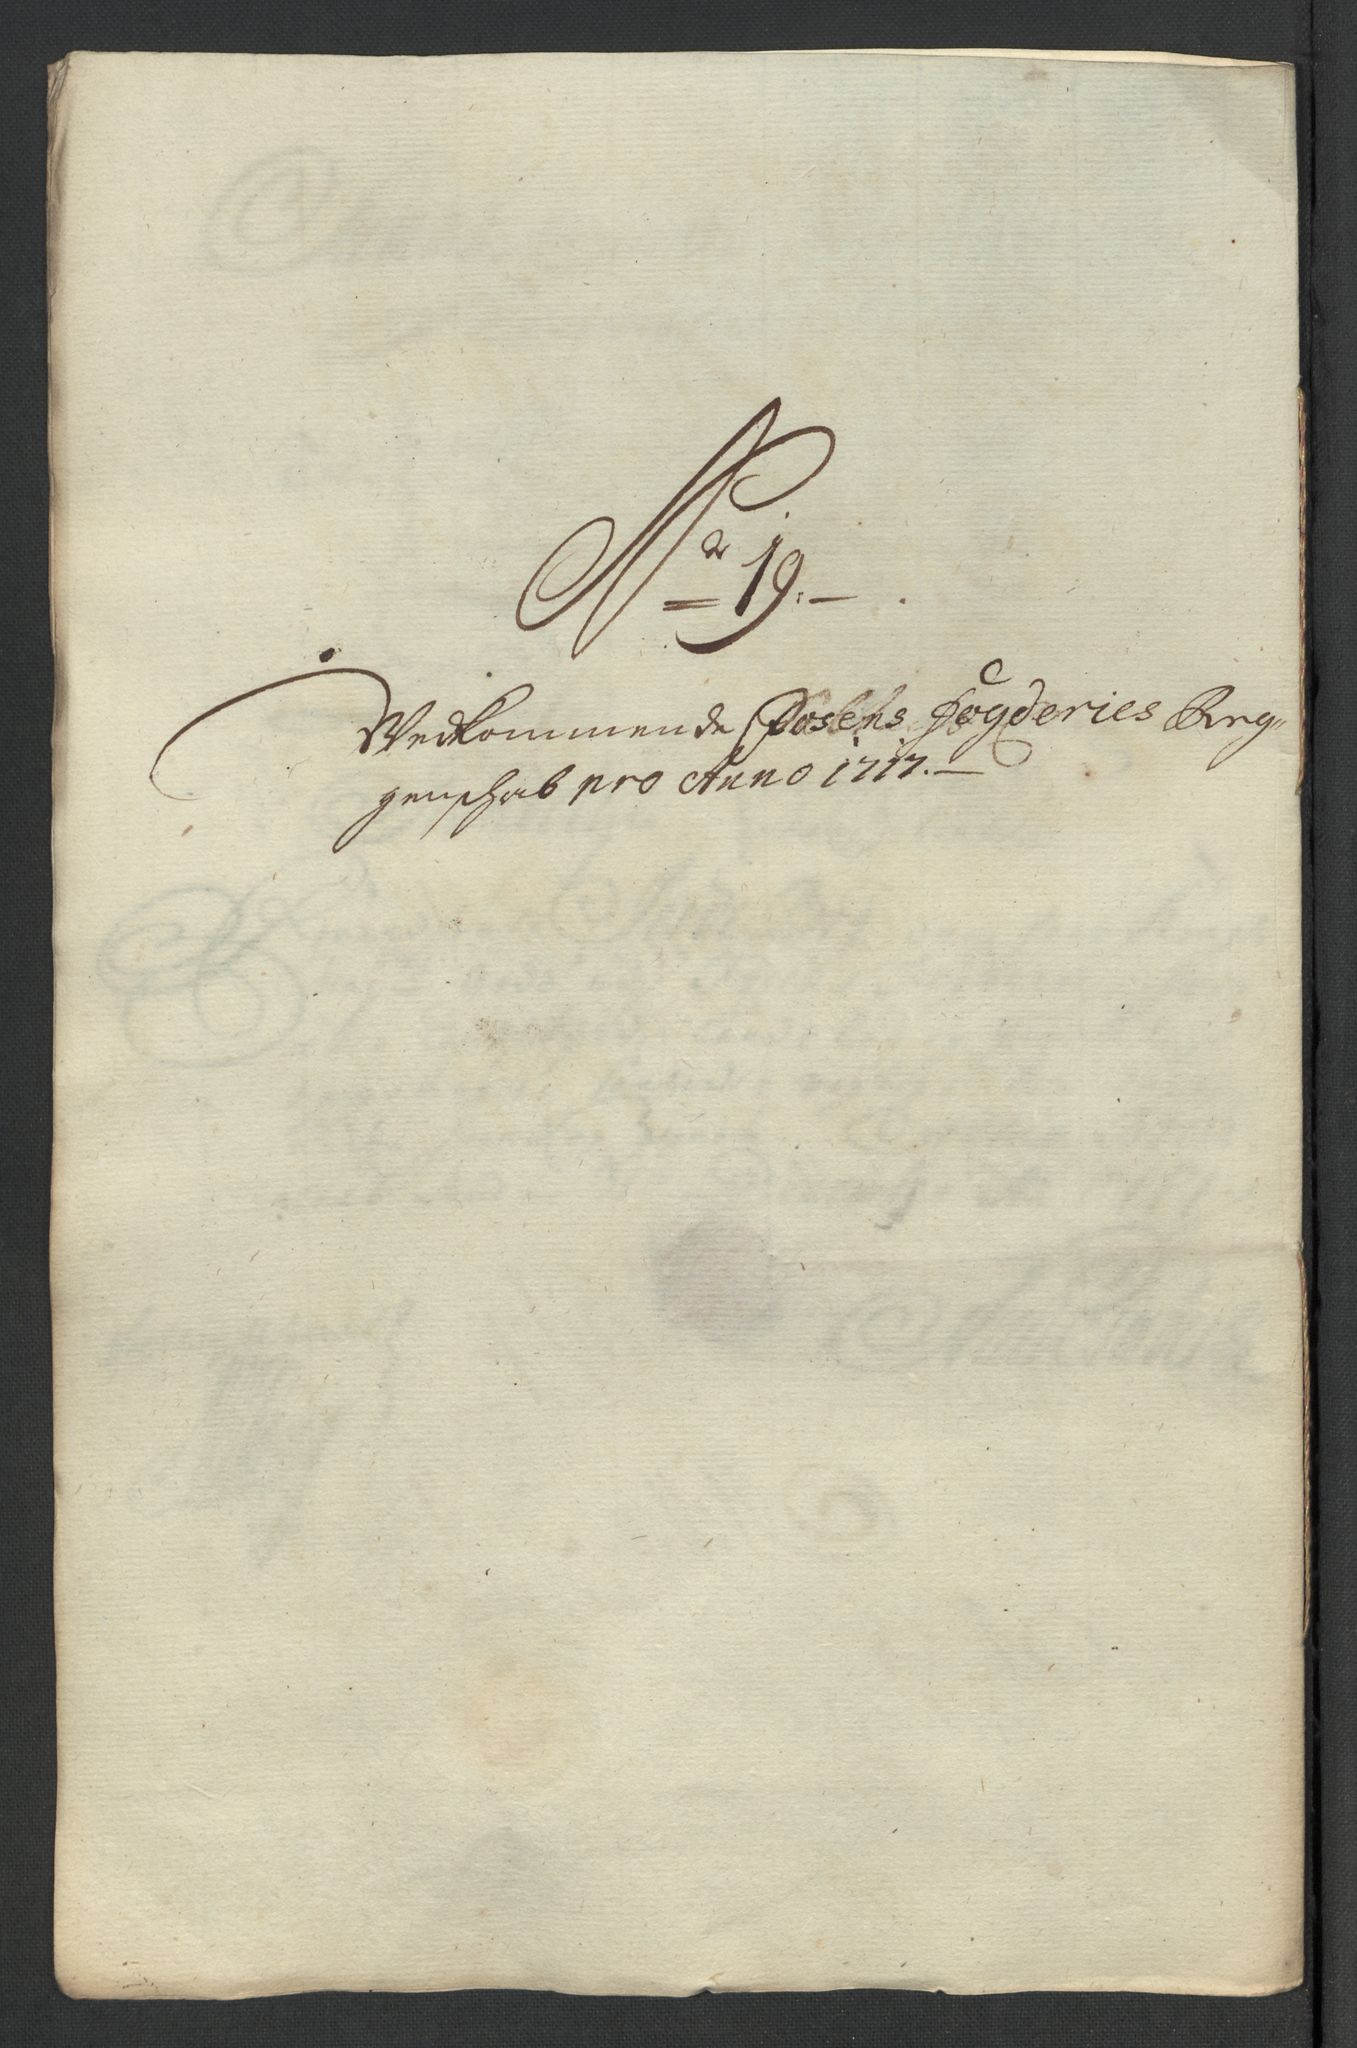 No 19.
Vedkommende Fosens Fogderies Reg-
genschab pro Anno 1717.